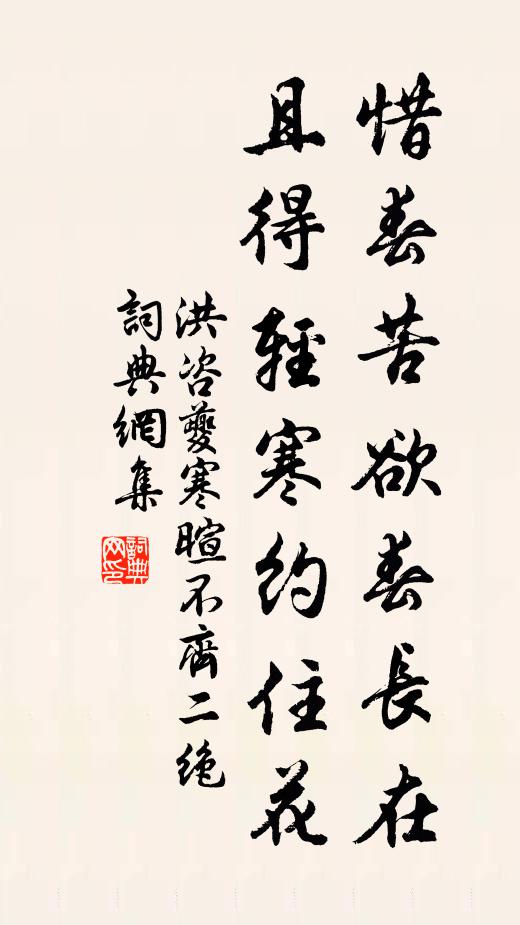 惜春苦欲春長在
且得輕寒約住花
洪咨夔寒暄不齊二絶
詞典網集
詞典網印